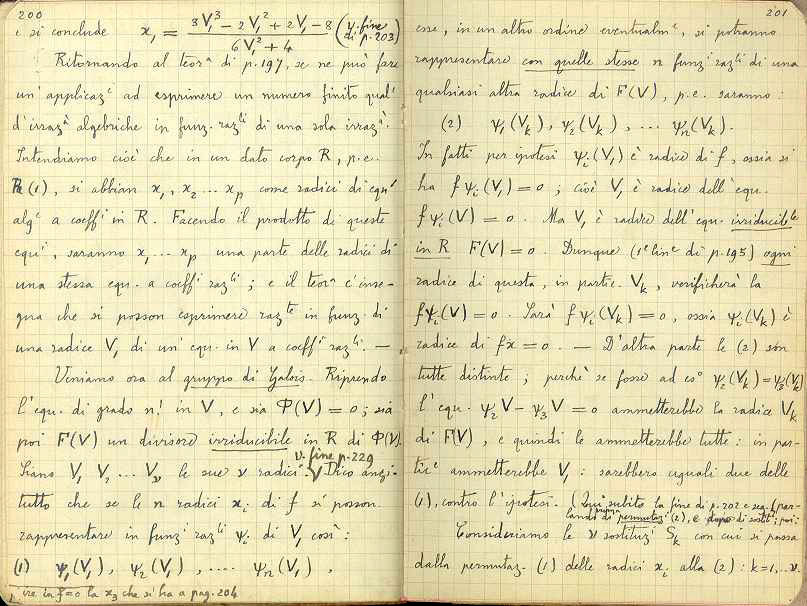 200
e si conclude x₁ = (3V₁³ − 2V₁² + 2V₁ − 8) / (6V₁² + 4) (v. fine di p. 203)
Ritornando al teorᵃ di p. 197, se ne può fare
un' applicazᵉ ad esprimere un numero finito qualᵉ
d'irrazˡⁱ algebriche in funz. razˡⁱ di una sola irrazᵗᵃ.
Intendiamo cioè che in un dato corpo R, p. e.
R(1), si abbian x₁, x₂ ... xₚ come radici di equⁱ
algᵉ a coeffⁱ in R. Facendo il prodotto di queste
equⁱ, saranno x₁ ... xₚ una parte delle radici di
una stessa equ. a coeffⁱ razˡⁱ ; e il teorᵃ c'inse-
gna che si posson esprimere razᵗᵉ in funz. di
una radice V₁ di un' equ. in V a coeffⁱ razˡⁱ. —
Veniamo ora al gruppo di Galois. Riprendo
l'equ. di grado n! in V, e sia Φ(V) = 0 ; sia
poi F(V) un divisore irriducibile in R di Φ(V).
v. fine p. 229
Siano V₁ V₂ ... Vᵥ le sue ν radici. Dico anzi-
tutto che se le n radici xᵢ di f si posson
rappresentare in funzⁱ razˡⁱ ψᵢ di V₁ così :
(1) ψ₁(V₁), ψ₂(V₁), .... ψₙ(V₁) ,
ire in f=0 la x₃ che si ha a pag. 204
201
esse, in un altro ordine eventualmᵉ, si potranno
rappresentare con quelle stesse n funzⁱ razˡⁱ di una
qualsiasi altra radice di F(V), p. e. saranno :
(2) ψ₁(Vₖ), ψ₂(Vₖ), ... ψₙ(Vₖ).
In fatti per ipotesi ψᵢ(V₁) è radice di f, ossia si
ha fψᵢ(V₁) = 0 ; cioè V₁ è radice dell' equ.
fψᵢ(V) = 0. Ma V₁ è radice dell' equ. irriducibˡᵉ
in R F(V) = 0. Dunque (1ᵉ linᵉ di p. 195) ogni
radice di questa, in partic. Vₖ, verificherà la
fψᵢ(V) = 0. Sarà fψᵢ(Vₖ) = 0, ossia ψᵢ(Vₖ) è
radice di fx = 0. — D'altra parte le (2) son
tutte distinte ; perchè se fosse ad esᵒ ψ₂(Vₖ) = ψ₃(Vₖ)
l'equ. ψ₂V − ψ₃V = 0 ammetterebbe la radice Vₖ
di F(V), e quindi le ammetterebbe tutte : in par-
ticᵉ ammetterebbe V₁ : sarebbero uguali due delle
(1), contro l'ipotesi. (Qui subito la fine di p. 202 e seg. (par-
lando prima di permutazⁱ (2), e dopo di sostitⁱ ; poi:
Consideriamo le ν sostituzⁱ Sₖ con cui si passa
dalla permutaz. (1) delle radici xᵢ alla (2) : k=1,..ν.